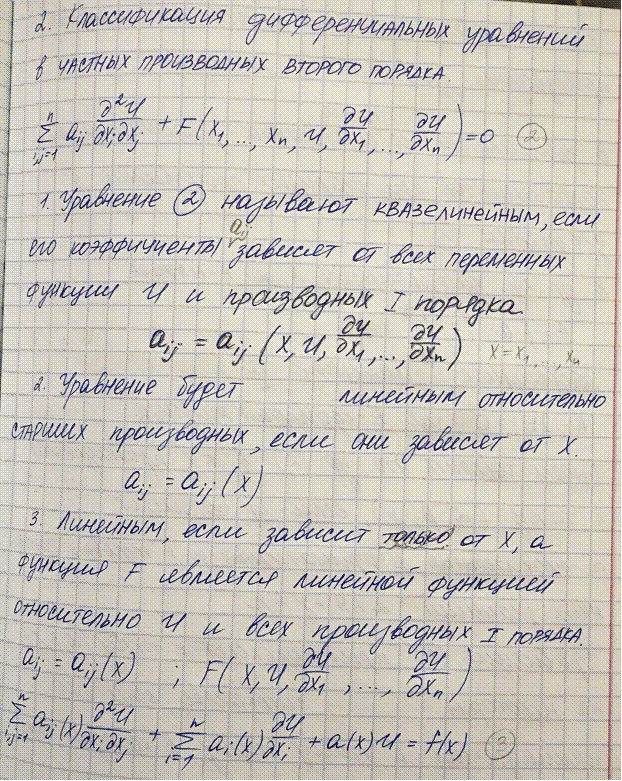 2. Классификация дифференциальных уравнений
в частных производных второго порядка.
∑_{i,j=1}^{n} a_{ij} ∂²u/∂x_i∂x_j + F(x_1, ..., x_n, u, ∂u/∂x_1, ..., ∂u/∂x_n) = 0 (2)
1. Уравнение (2) называют квазелинейным, если
его коэффициенты a_{ij} зависят от всех переменных
функции u и производных I порядка.
a_{ij} = a_{ij} (x, u, ∂u/∂x_1, ..., ∂u/∂x_n) x = x_1, ..., x_n
2. Уравнение будет линейным относительно
старших производных, если они зависят от x.
a_{ij} = a_{ij} (x)
3. Линейным, если зависит только от x, а
функция F является линейной функцией
относительно u и всех производных I порядка.
a_{ij} = a_{ij} (x) ; F(x, u, ∂u/∂x_1, ..., ∂u/∂x_n)
∑_{i,j=1}^{n} a_{ij}(x) ∂²u/∂x_i∂x_j + ∑_{i=1}^{n} a_i(x) ∂u/∂x_i + a(x)u = f(x) (3)